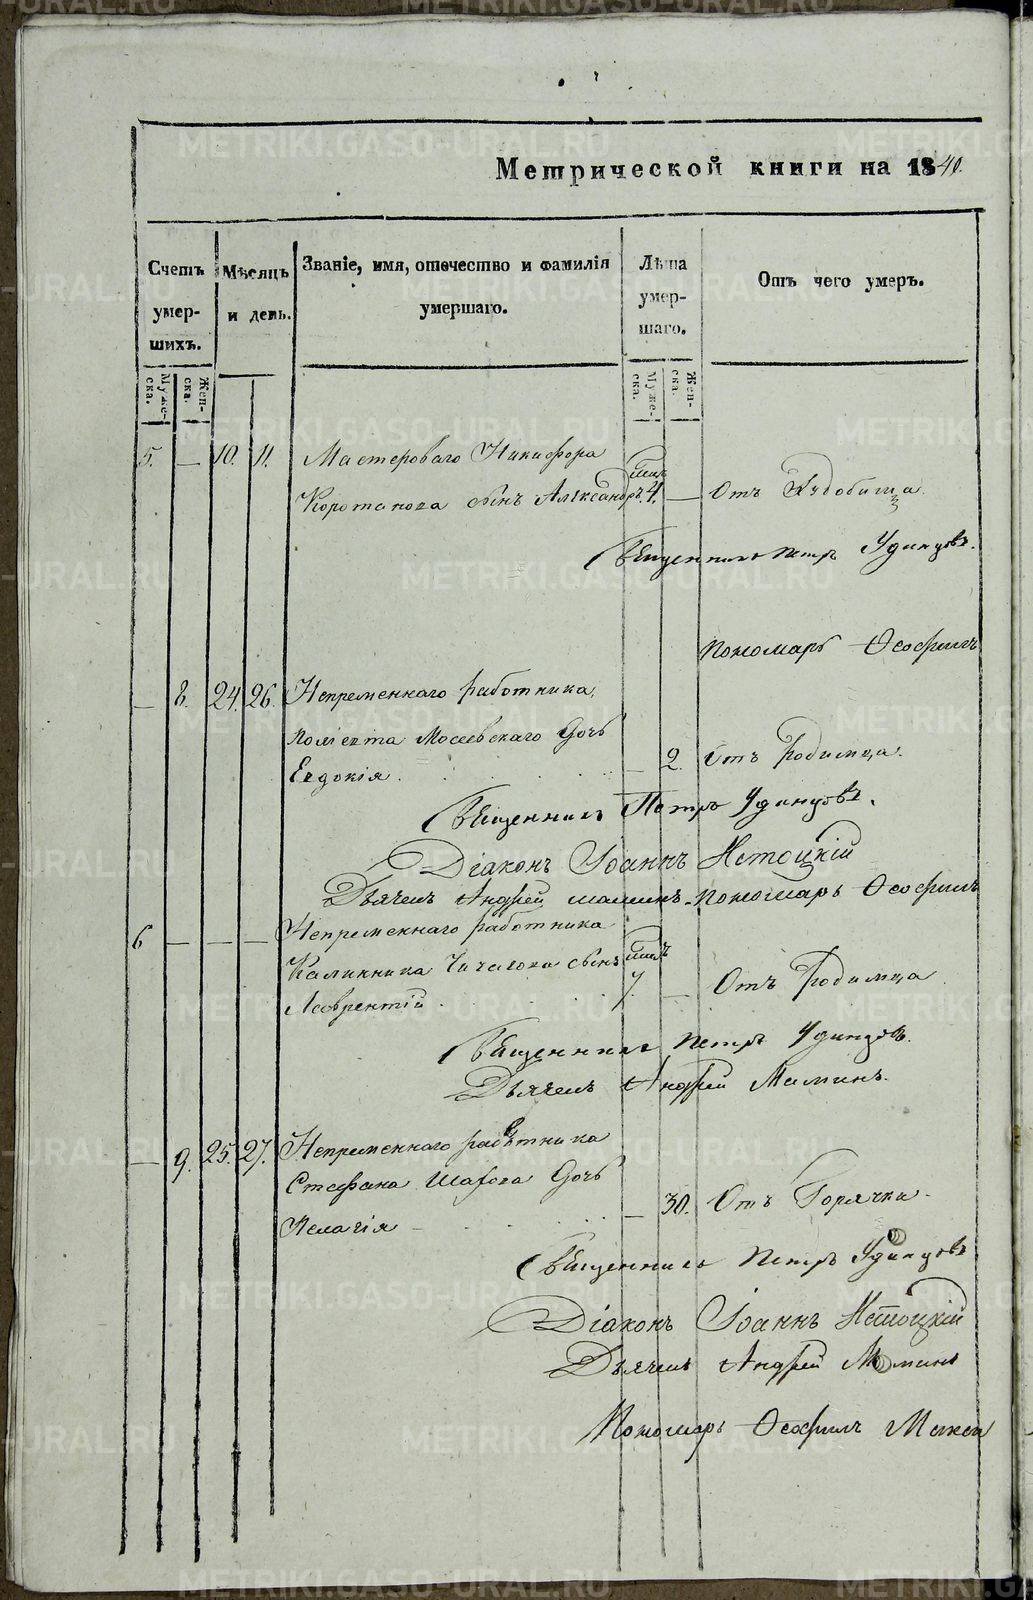 Метрической книги на 1840.
Счетъ умерших. Мѣсяцъ и день. Званіе, имя, отечество и фамилія умершаго. Лѣта умершаго. Отъ чего умеръ.
Мужеска. Женска. Мужеска. Женска.
5. — 10. 11. Мастероваго Никифора
Коротаков сынъ Александръ. 4. — Отъ Худобища
Священникъ Петръ Удинцовъ.
Пономарь Ѳеофилъ
— 8. 24. 26. Непременнаго работника
Мосеевскаго дочь
Евдокія. — 2. Отъ Родимца.
Священникъ Петръ Удинцовъ.
Діаконъ Іоаннъ Нетоцкій
Дьячекъ Андрей Маминъ. Пономарь Ѳеофилъ
6 — — — Непременнаго работника
Калинника Чичагова сынъ
Лаврентій 7. — Отъ Родимца
Священникъ Петръ Удинцовъ.
Дьячекъ Андрей Маминъ.
— 9. 25. 27. Непременнаго работника
Стефана Шахова дочь
Пелагія — 30. Отъ Горячки.
Священникъ Петръ Удинцовъ
Діаконъ Іоаннъ Нетоцкій
Дьячекъ Андрей Маминъ
Пономарь Ѳеофилъ
METRIKI.GASO-URAL.RU